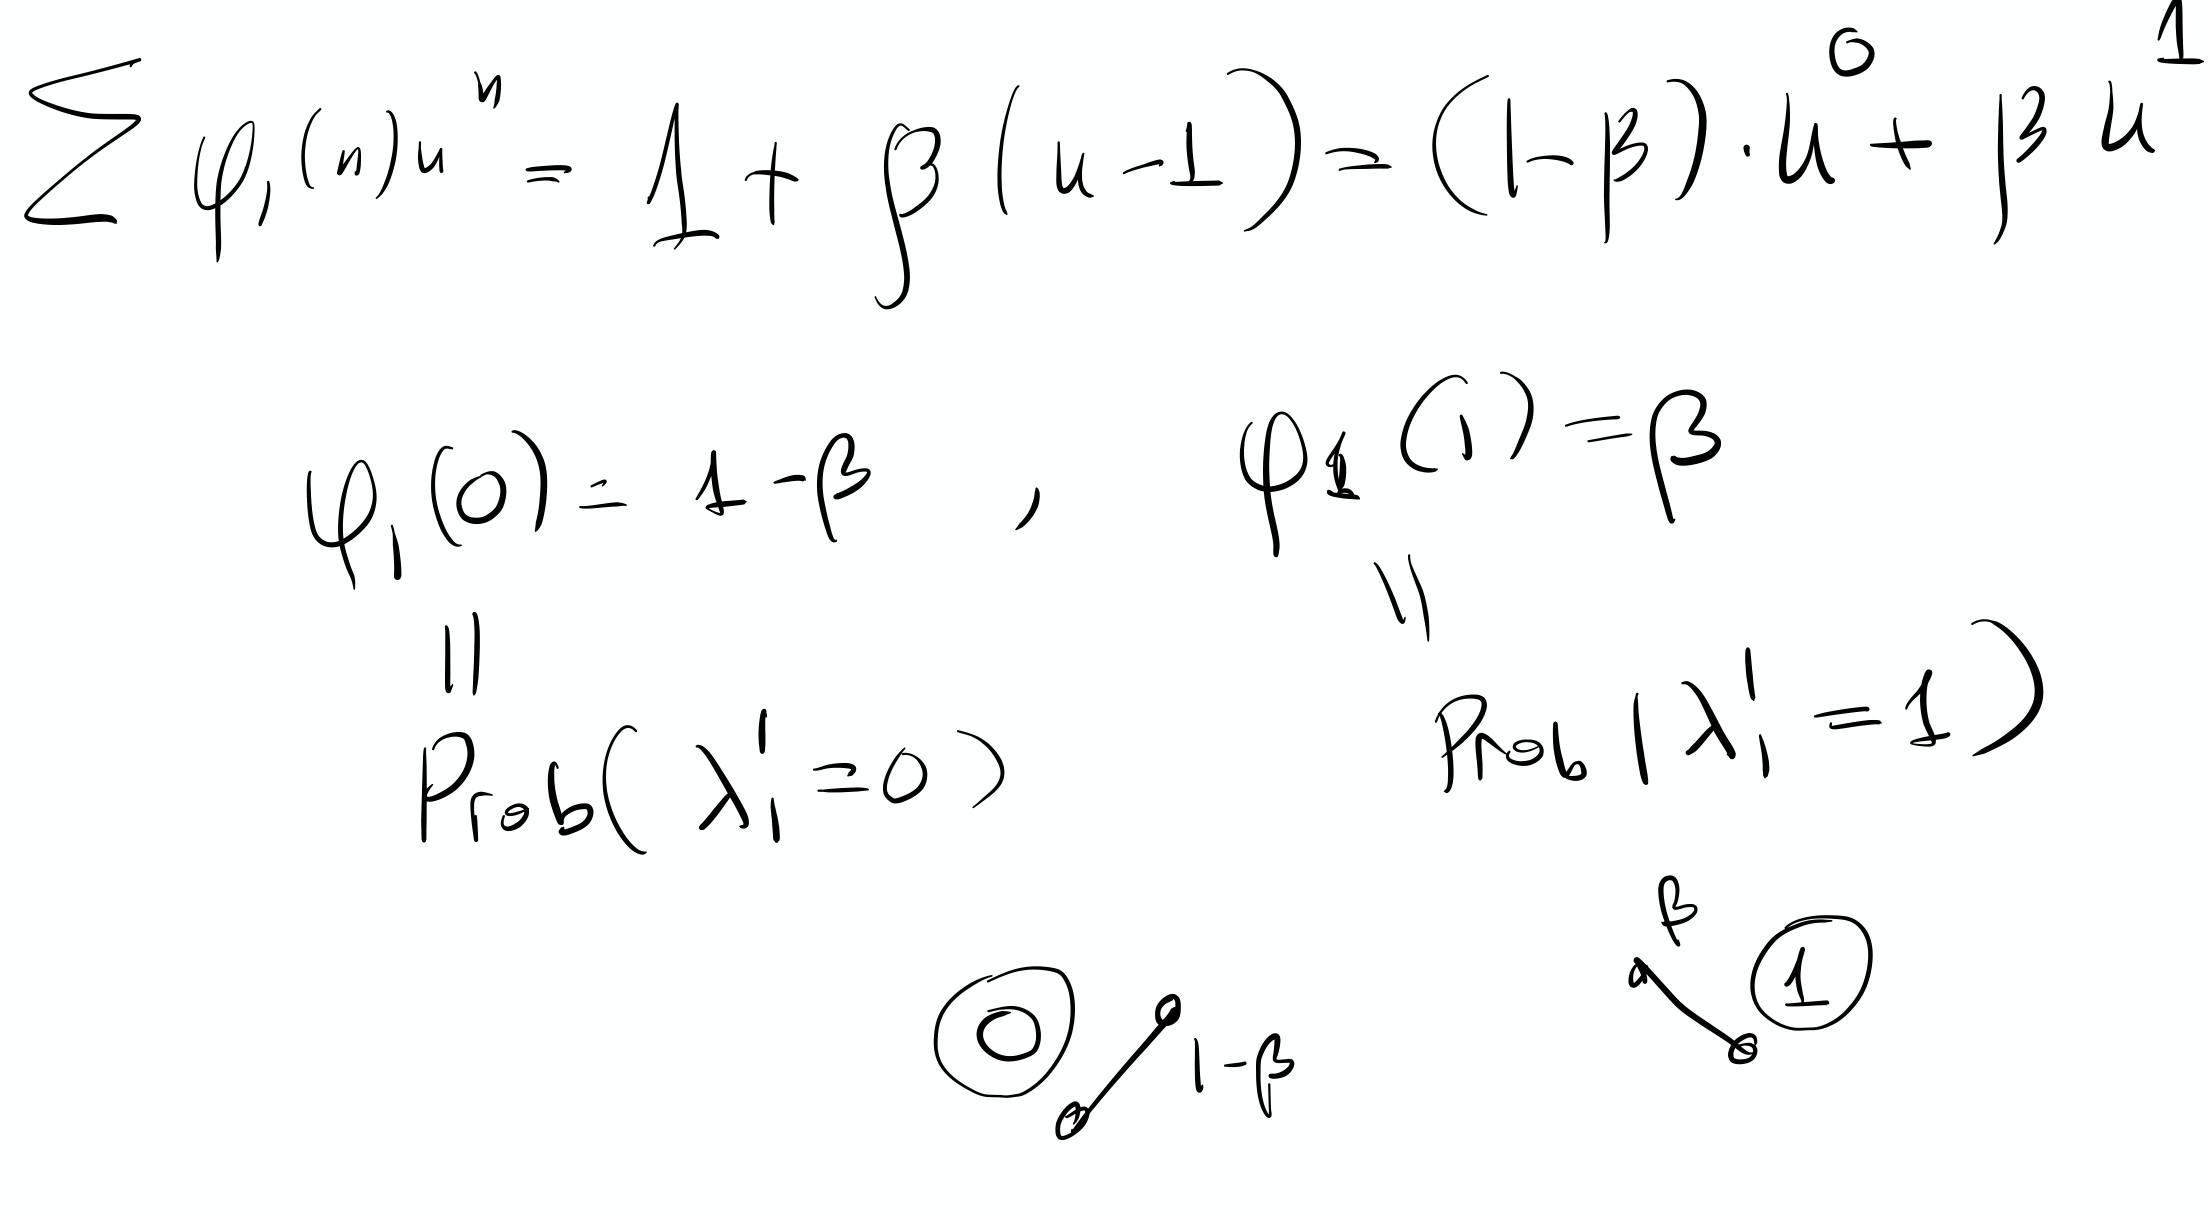 ∑ φ₁(n)uⁿ = 1 + β(u-1) = (1-β)·u⁰ + βu¹
φ₁(0) = 1-β , φ₁(1) = β
|| ||
Prob(λ₁¹=0) Prob(λ₁¹=1)
β
0 1
1-β